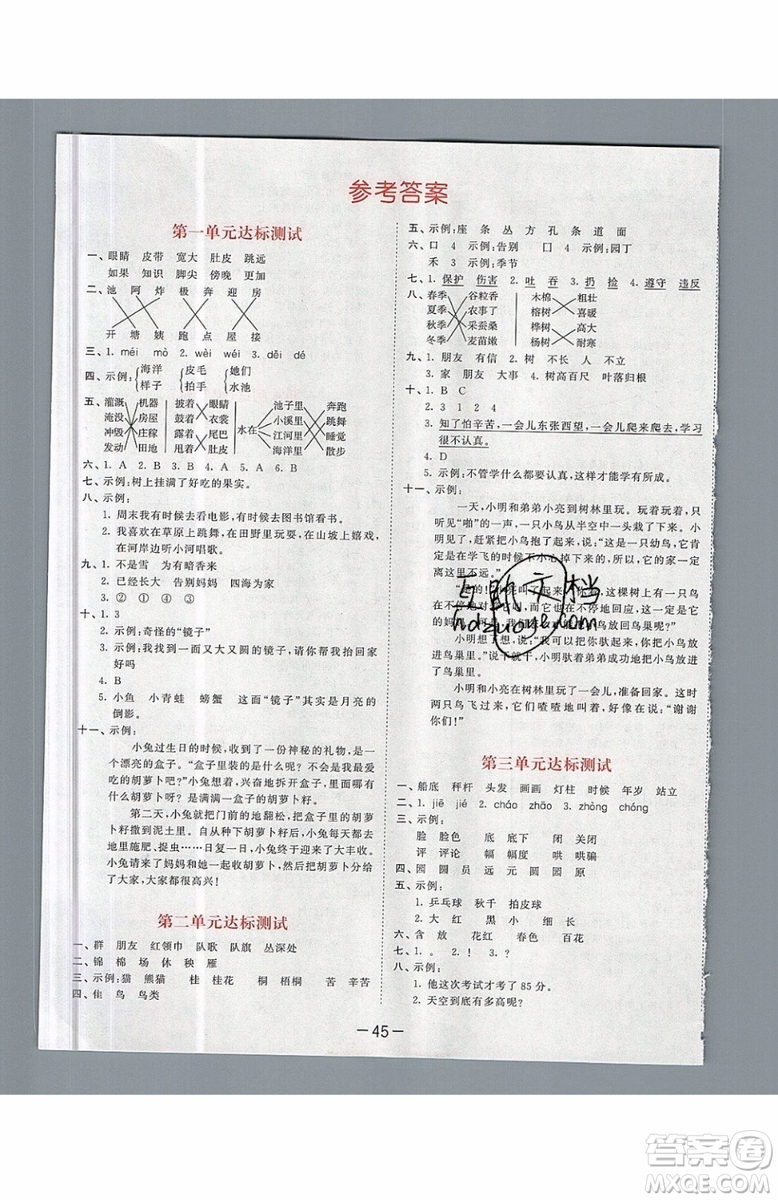 参考答案
第一单元达标测试
一、眼睛 皮带 宽大 肚皮 跳远
如果 知识 脚尖 傍晚 更加
二、池 阿 炸 极 奔 迎 房
开 塘 姨 跑 点 屋 接
三、1. méi mò 2. wèi wéi 3. děi dé
四、示例：海洋 皮毛 她们
样子 拍手 水池
五、灌溉 机器 披着 眼睛 池子里 奔跑
淹没 房屋 鼓着 衣裳 小溪里 跳舞
水在
冲毁 庄稼 露着 尾巴 江河里 睡觉
发动 田地 甩着 肚皮 海洋里 散步
六、1. A 2. B 3. B 4. A 5. A 6. B
七、示例：树上挂满了好吃的果实。
八、示例：
1. 周末我有时候去看电影，有时候去图书馆看书。
2. 我喜欢在草原上跳舞，在田野里唱歌，在山坡上嬉戏，
在河岸边听小河唱歌。
九、1. 不是 雪 为有暗香来
2. 已经长大 告别妈妈 四海为家
3. ② ① ④ ③
十、1. 3
2. 示例：奇怪的“镜子”
3. 示例：我找到一面又大又圆的镜子，请你帮我抬回家
好吗？
4. B
5. 小鱼 小青蛙 螃蟹 这面“镜子”其实是月亮的
倒影。
十一、示例：
小兔过生日的时候，收到一份神秘的礼物，是一
个漂亮的盒子。“盒子里装的是什么呀？会不会是我
最喜欢的胡萝卜呀？”小兔兴奋地拆开盒子，盒子里
装的是胡萝卜籽。
第二天，小兔把门前的地翻松，把盒子里的胡萝
卜籽撒到泥土里。自从种下胡萝卜籽后，小兔每天都
在地里施肥、捉虫……一个多月后，小兔迎来了大丰收。
小兔请来了妈妈和她一起收胡萝卜，还把胡萝卜分给
了大家，大家都很高兴！
第二单元达标测试
一、群 朋友 红领巾 队歌 队旗 丛深处
二、锦 棉 场 休 秧 雁
三、示例：猫 熊猫 桂 桂花 桐 梧桐 苦 辛苦
四、隹 鸟 鸟类
五、示例：座 条 丛 方 孔 条 道 面
六、口 4 示例：告别 囗 4 示例：园丁
禾 3 示例：季节
七、1. 保护 伤害 2. 吐 吞 3. 扔 捡 4. 遵守 违反
八、春季 谷粒香 木棉 粗壮
夏季 农事了 榕树 喜暖
秋季 采蚕桑 桦树 高大
冬季 麦苗嫩 枫树 耐寒
九、1. 朋友 有信 2. 树 不长 人 不立
3. 家 朋友 大事 4. 树高百尺 叶落归根
十、1. B C
2. 3 1 2 4
3. 知了怕辛苦，一会儿东张西望，一会儿爬来爬去，学习
很不认真。
4. D
5. 示例：不管学什么都要认真，这样才能学有所成。
十一、示例：
一天，小明和弟弟小亮到树林里玩。玩着玩着，
只听见“啪”的一声，一只小鸟从半空中一头栽到地上。
小明见了，赶紧把小鸟抱了起来：“这是一只幼鸟，肯
定是在学飞的时候不小心掉下来的。我们把它送回
家吧！”
是的！
在不停地
小明想了想，说：“我可以把你驮起来，你把小鸟放进
鸟巢里。”说干就干，小明驮着弟弟成功地把小鸟放进
鸟巢里。
小明和小亮在树林里玩了一会儿，准备回家。这时
两只鸟飞了过来，它们喳喳地叫着，好像在说：“谢谢
你们！”
第三单元达标测试
一、船底 秤杆 头发 画画 灯柱 时候 年岁 站立
二、1. jiē jié 2. cháo zhāo 3. zhòng chóng
三、示例：
脸 脸色 底 底下 闭 关闭
评 评论 幅 幅度 哄 哄骗
四、圆 圆 员 远 元 圆 园
五、示例：
1. 乒乓球 秋千 拍皮球
2. 象棋 滑梯
六、含 放 花红 春色 百花
七、1. 。 2. ！ 3. ？ 4. 。
八、示例：
1. 他这次考试才考了85分。
2. 天空到底有多高呢？
— 45 —
互助文档
hdzuoye.com
答案圈
MXQE.COM